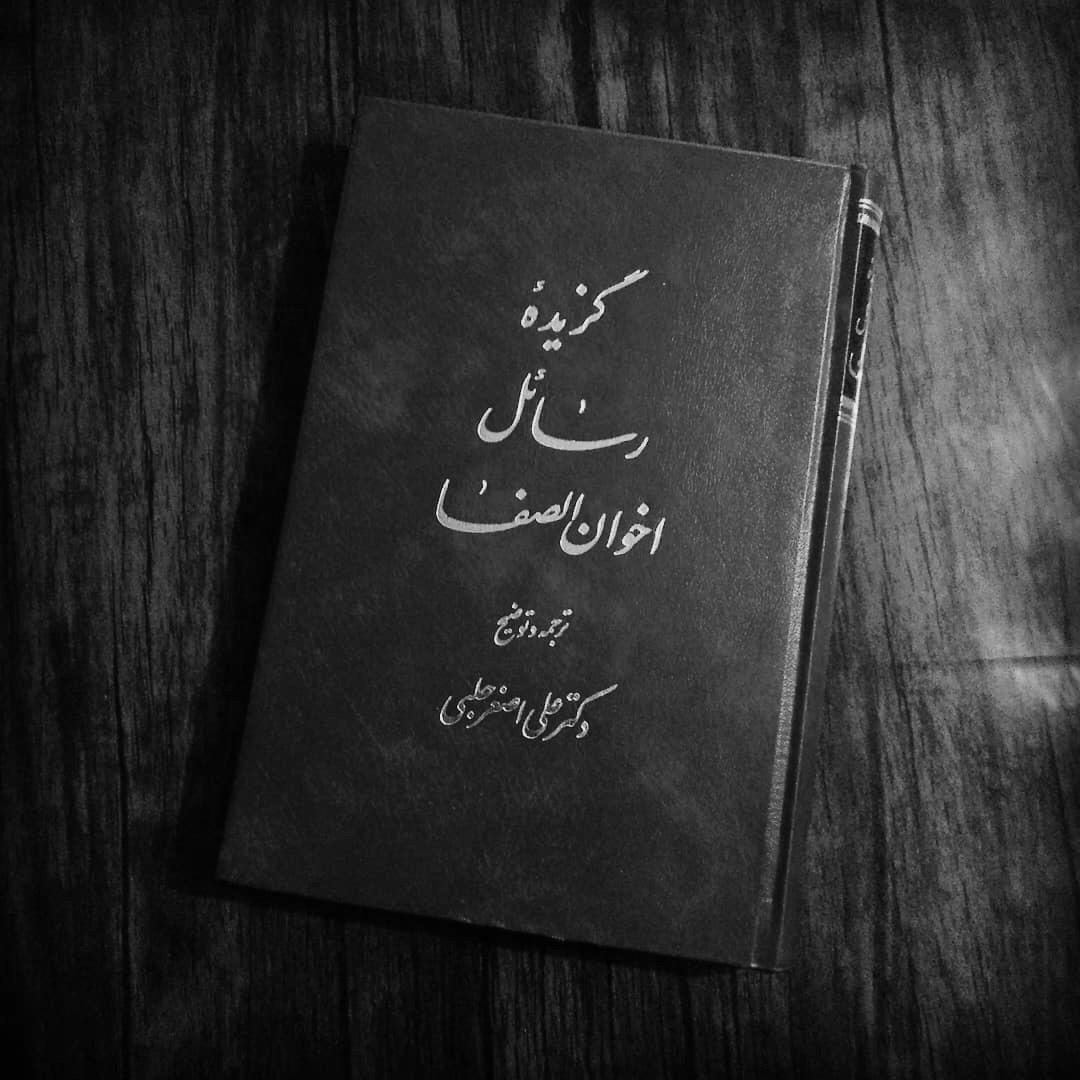 گزیدهٔ
رسائل
اخوان الصفا
ترجمه و توضیح
دکتر علی اصغر حلبی